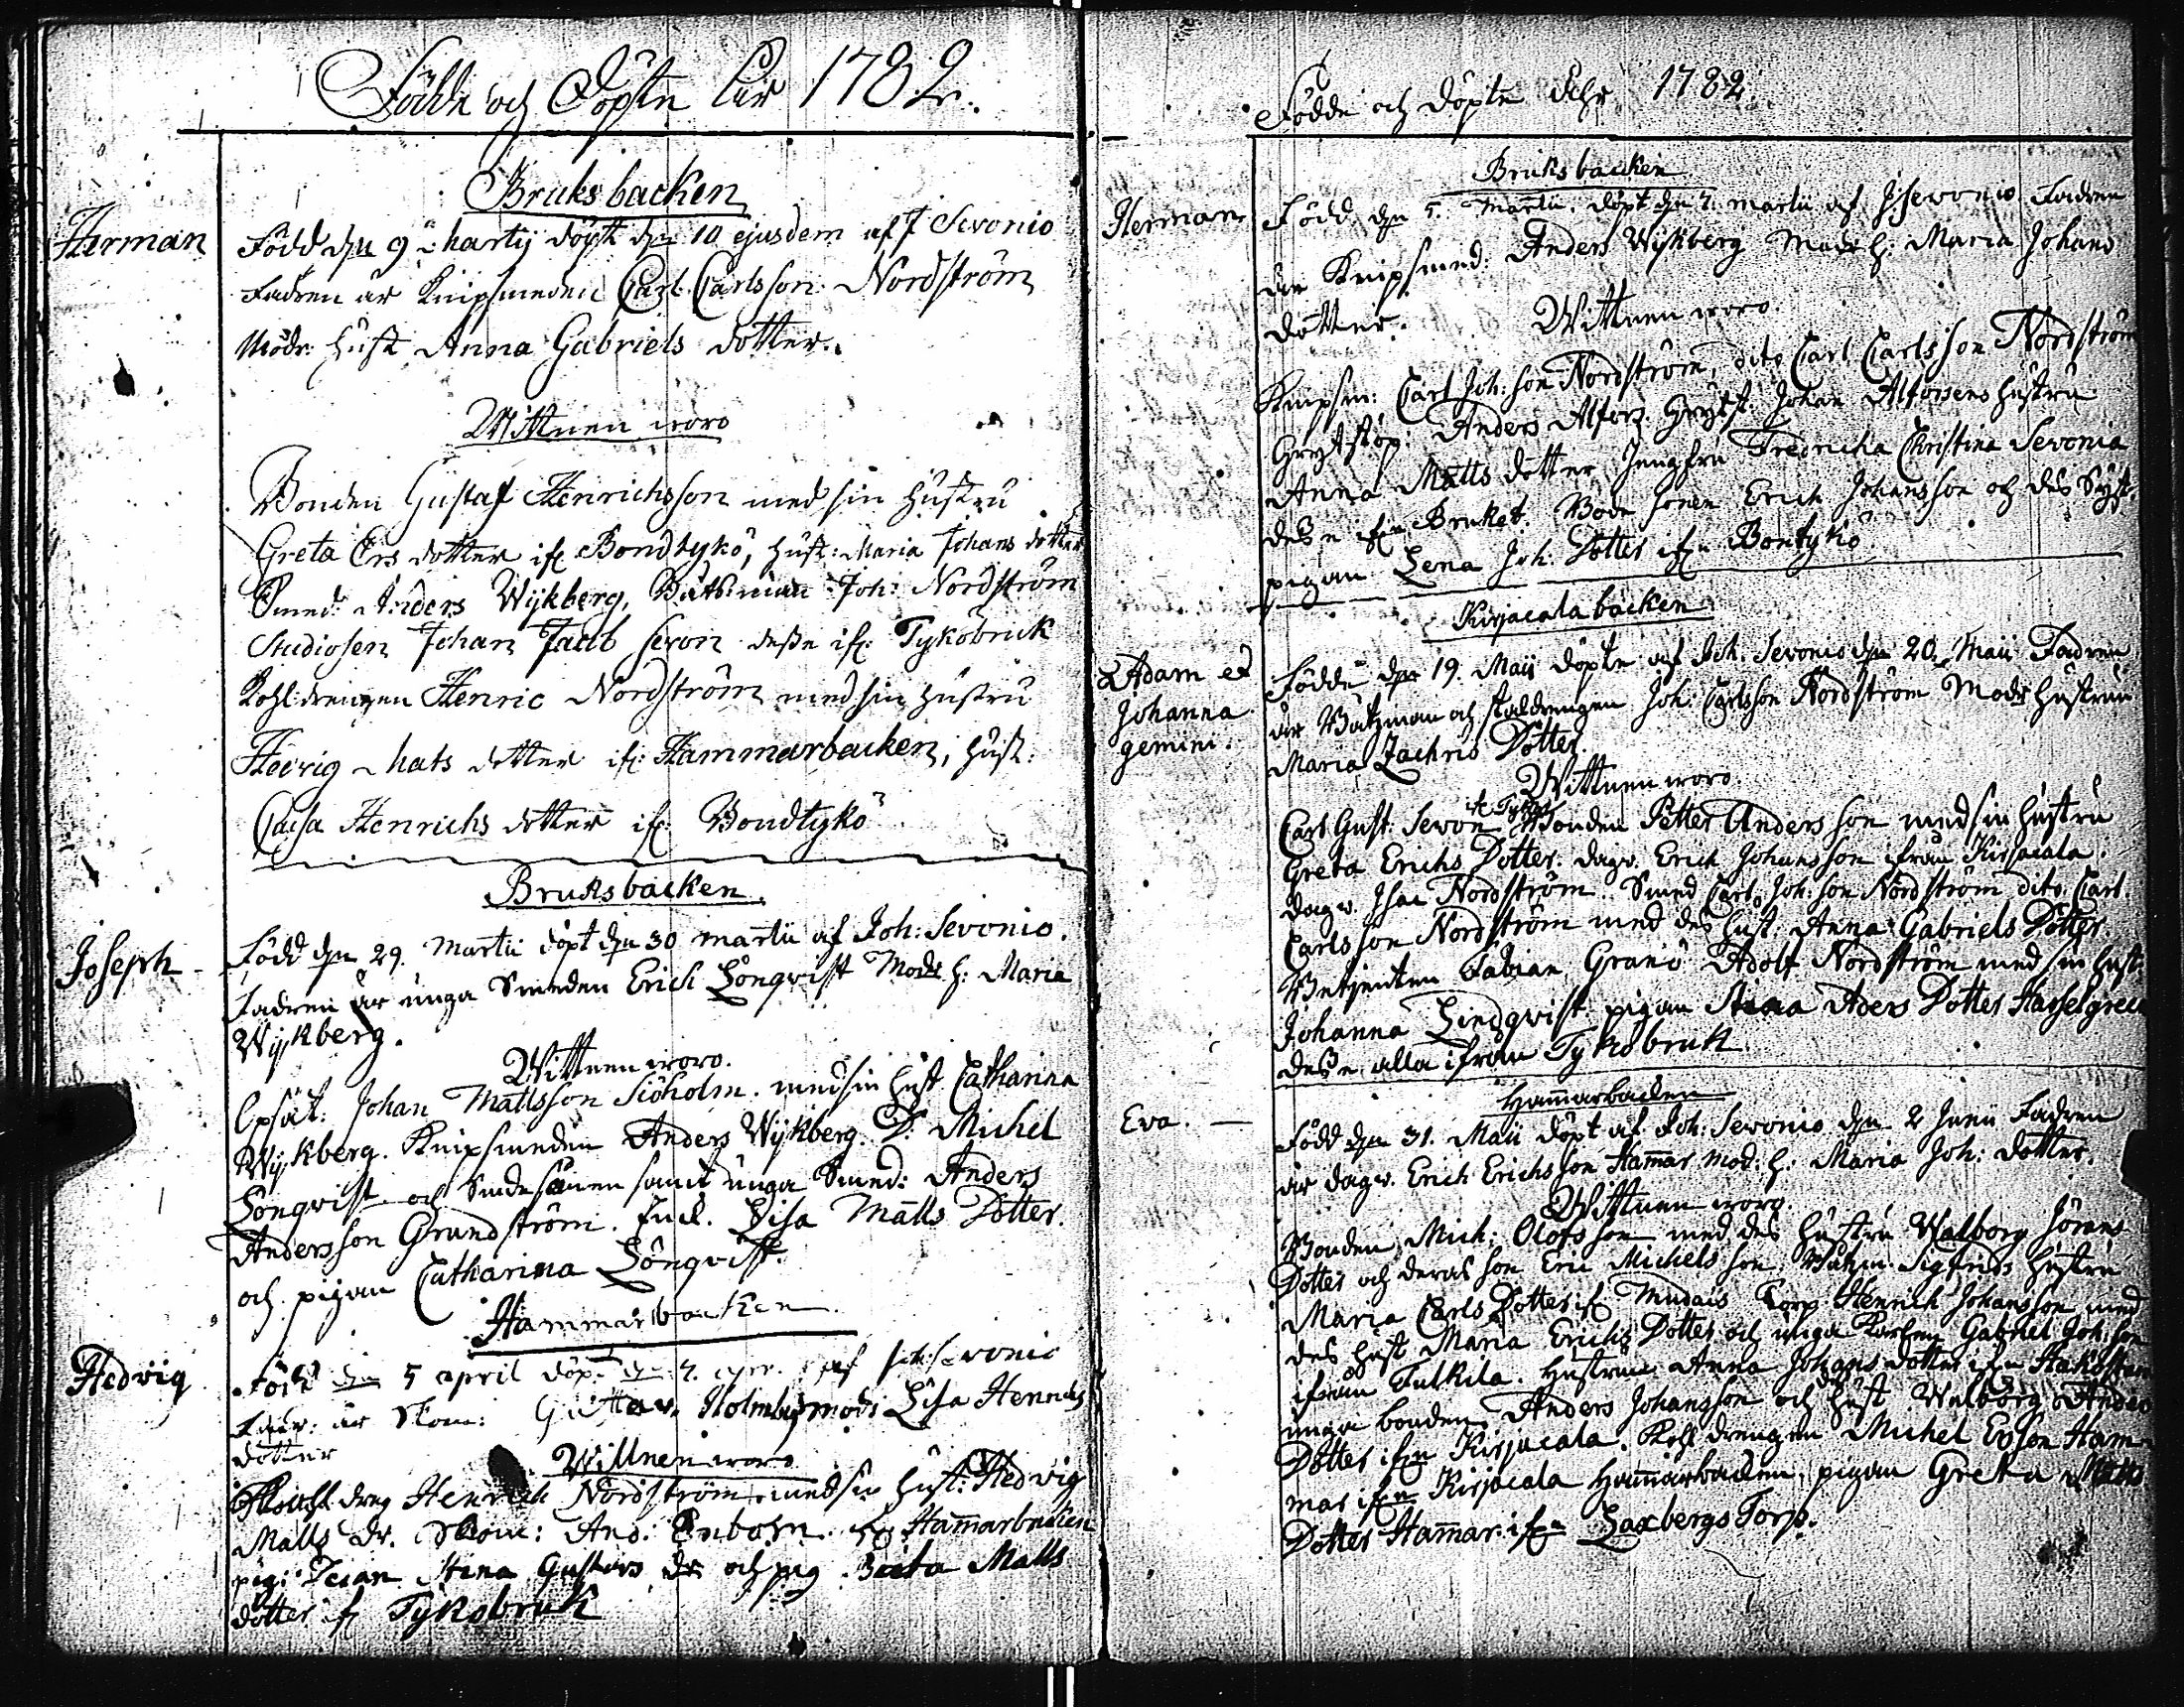 Födde och Döpte åhr 1782.
Bruksbacken
Herman
Född den 9 Martij döpt den 10 ejusdem af J Sevonio
Fadren är Knipsmeden Carl Carlsson Nordström
Modr: hust Anna Gabriels dotter.
Wittnen woro
Bonden Gustaf Henrichsson med sin hustru
Greta Ers dotter ifr Bondtykö, hust: Maria Johans dotter
Smed: Anders Wijkberg, Båtsman Joh: Nordström
Studiosen Johan Jacob Sevon desse ifr: Tyköbruk
Kohldrengen Henric Nordström med sin hustru
Hedvig Mats dotter ifr: Hammarbacken, hust:
Caisa Henrichs dotter ifr Bondtykö
Bruksbacken.
Joseph
Född den 29. Martii döpt den 30 martii af Joh: Sevonio.
Fadren är unga Smeden Erich Lönqvist Modr h: Maria
Wijkberg.
Wittnen woro.
Johan Mattsson Siöholm. med sin hust Catharina
Wijkberg. Knipsmeden Anders Wijkberg. D: Michel
Lönqvist och samt unga Smed: Anders
Andersson Grundström. Lisa Matts Dotter.
och pigan Catharina Lönqvist.
Hammarbacken
Hedvig
Född den 5 april döpt den 7. af Joh: Sevonio
Fadr: är Holmberg modr Lisa Henrichs
dotter
Wittnen woro
dreng Henrich Nordström med sin hust: Hedvig
Matts dr. And: Enbom Hammarbacken
pig: Stina Gustavs dr och pig Beata Matts
dotter ifr Tykobruk
Födde och döpte Åhr 1782
Bruksbacken
Herman
Född den 5. Martii. döpt den 7. martii af J Sevonio Fadren
är Knipsmed: Anders Wijkberg Modr h: Maria Johans
dotter. Wittnen woro.
Knipsm: Carl Joh:son Nordström, dito Carl Carlsson Nordström
Grytstöp: Anders Alfors. Grytst: Johan Alforsens hustru
Anna Matts dotter, Jungfru Fredricka Christina Sevonia
desse ifrn Bruket. Bonde sonen Erich Johansson och des Syst.
pigan Lena Joh: Dotter ifrn Bontykö
Kirjacala backen
Adam et
Johanna
gemini.
Födde den 19. Maii döpte af Joh. Sevonio den 20. Maii Fadren
är Båtzman och staldrengen Joh: Carlsson Nordström Modr hustrun
Maria Zachris Dotter.
Wittnen woro.
Carl Gust. Sevon ifr Tykö, Bonden Petter Andersson med sin hustru
Greta Erichs Dotter. dagw. Erich Johansson ifrån Kirjacala.
dagw. Isac Nordström. Smed Carl Joh:son Nordström dito Carl
Carlsson Nordström med des hust. Anna Gabriels Dotter.
Betjenten Fabian Granö Adolf Nordström med sin hust:
Johanna Lindqvist pigan Stina Aders Dotter Hasselgreen
desse alla ifrån Tykobruk
Hammarbacken
Eva.
Född den 31. Maii döpt af Joh: Sevonio den 2 Junii Fadren
är dagw. Erich Erichsson Hammar mod: h: Maria Joh: dotter.
Wittnen woro.
Bonden Mich: Olofsson med des hustru Walborg Jörans
Dotter och deras son Eric Michelsson. Båtzm. Sigfrids hustru
Maria Carls Dotter ifr Mudais Torp Henrich Johansson med
des hust Maria Erichs Dotter och unga Gabriel Joh:son
ifrån Tulkila. Hustrun Anna Johans dotter ifrn
unga bonden Anders Johansson och des hust Walborg Anders
Dotter ifrn Kirjacala. Kohldrengen Michel Ersson Ham-
mar ifrn Kirjacala Hammarbacken, pigan Greta Matts
Dotter Hammar: ifrn Laxbergs Torp.